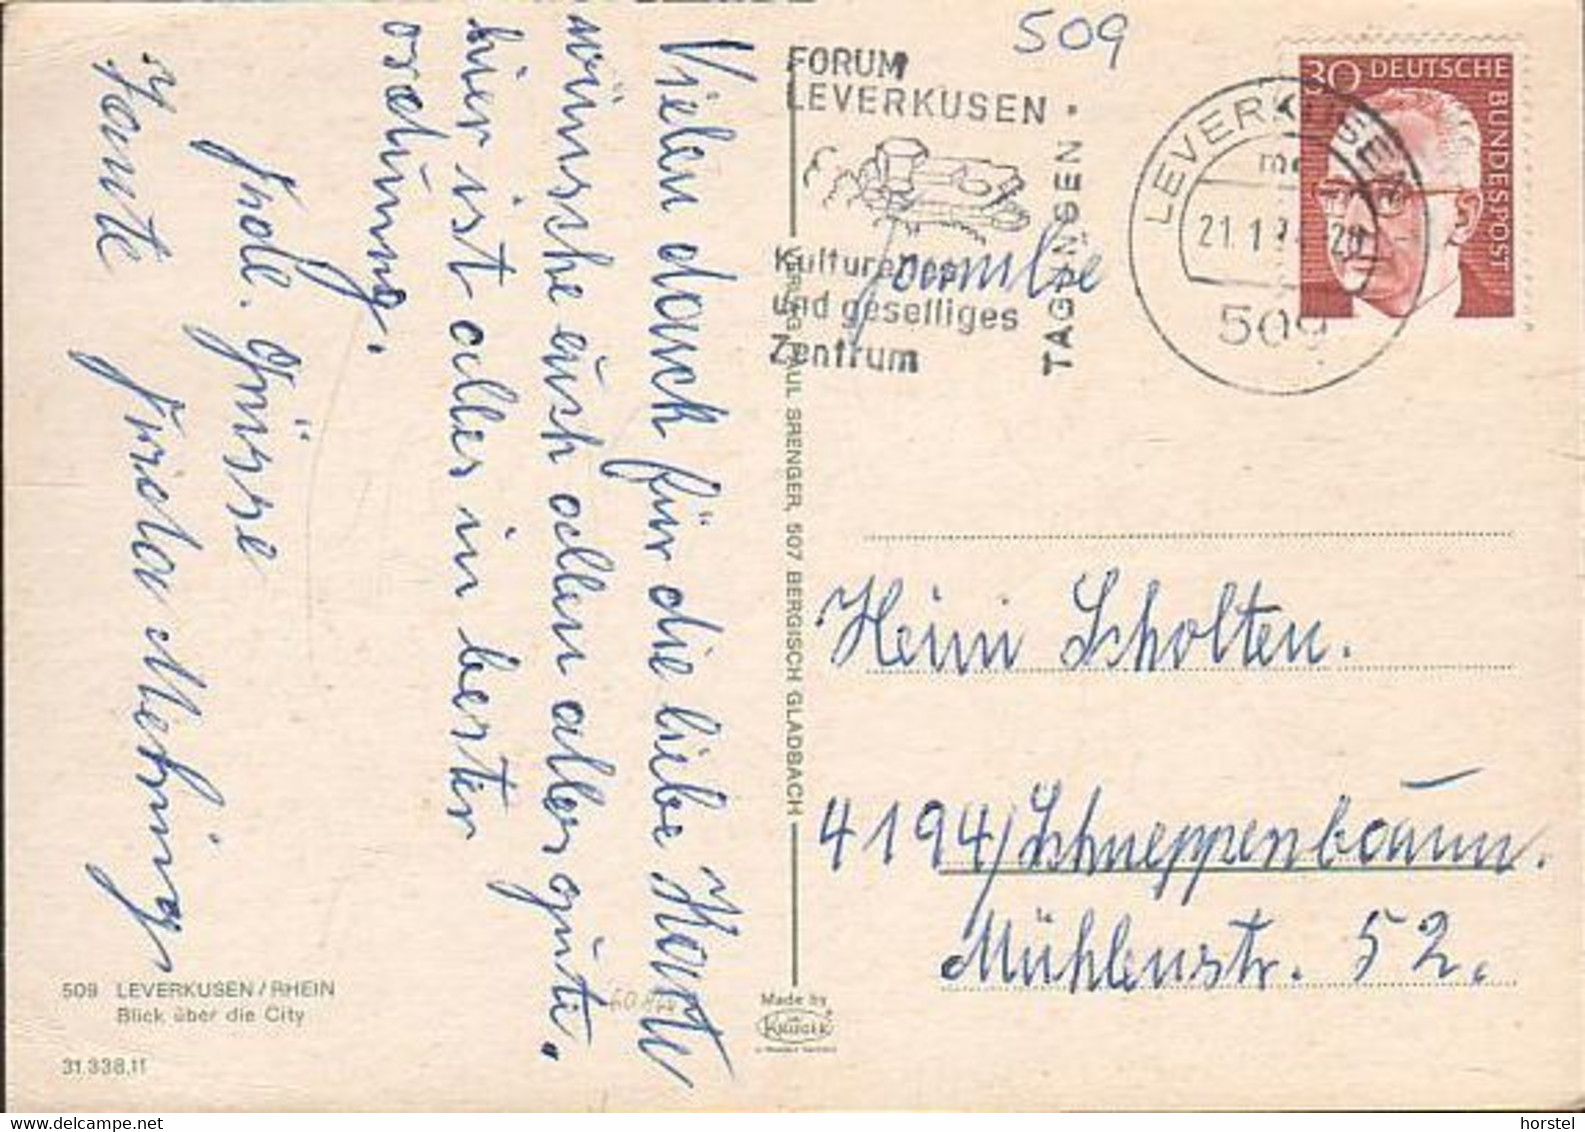 Vielen dank für die liebe Karte
wünsche auch allen alles gute.
hier ist alles in bester
ordnung.
Frdl. Grüsse
Tante Frida Mehring
509 LEVERKUSEN/RHEIN
Blick über die City
31.338.11
VERLAG PAUL SRENGER, 507 BERGISCH GLADBACH
Made by
KRÜGER
509
FORUM
LEVERKUSEN •
TAGUNGSEN
Kulturelles
und geselliges
Zentrum
LEVERKUSEN
21.1.7
509
30 DEUTSCHE BUNDESPOST
Familie
Heini Scholten.
4194/Schneppenbaum.
Mühlenstr. 52.
horstel